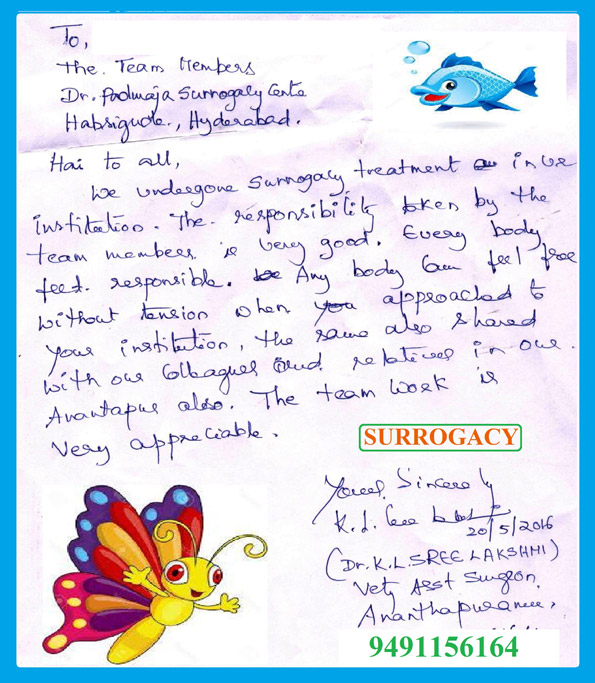 To,
The. Team Members
Dr. Padmaja Surrogacy Cente
Habsigude., Hyderabad.
Hai to all,
We undergone Surrogacy treatment in
institution. The. responsibility taken by the
team members is very good. Every body
feel. responsible. Any body can feel free
without tension when you approached to
your institution, the same also shared
with our Colleagues and relatives in our
Anantapur also. The team work is
Very appreciable.
SURROGACY
Yours Sincerely
K. L.
20/5/2016
(Dr. K.L. SREE LAKSHMI)
Vety Asst Surgeon,
Ananthapuramu,
9491156164